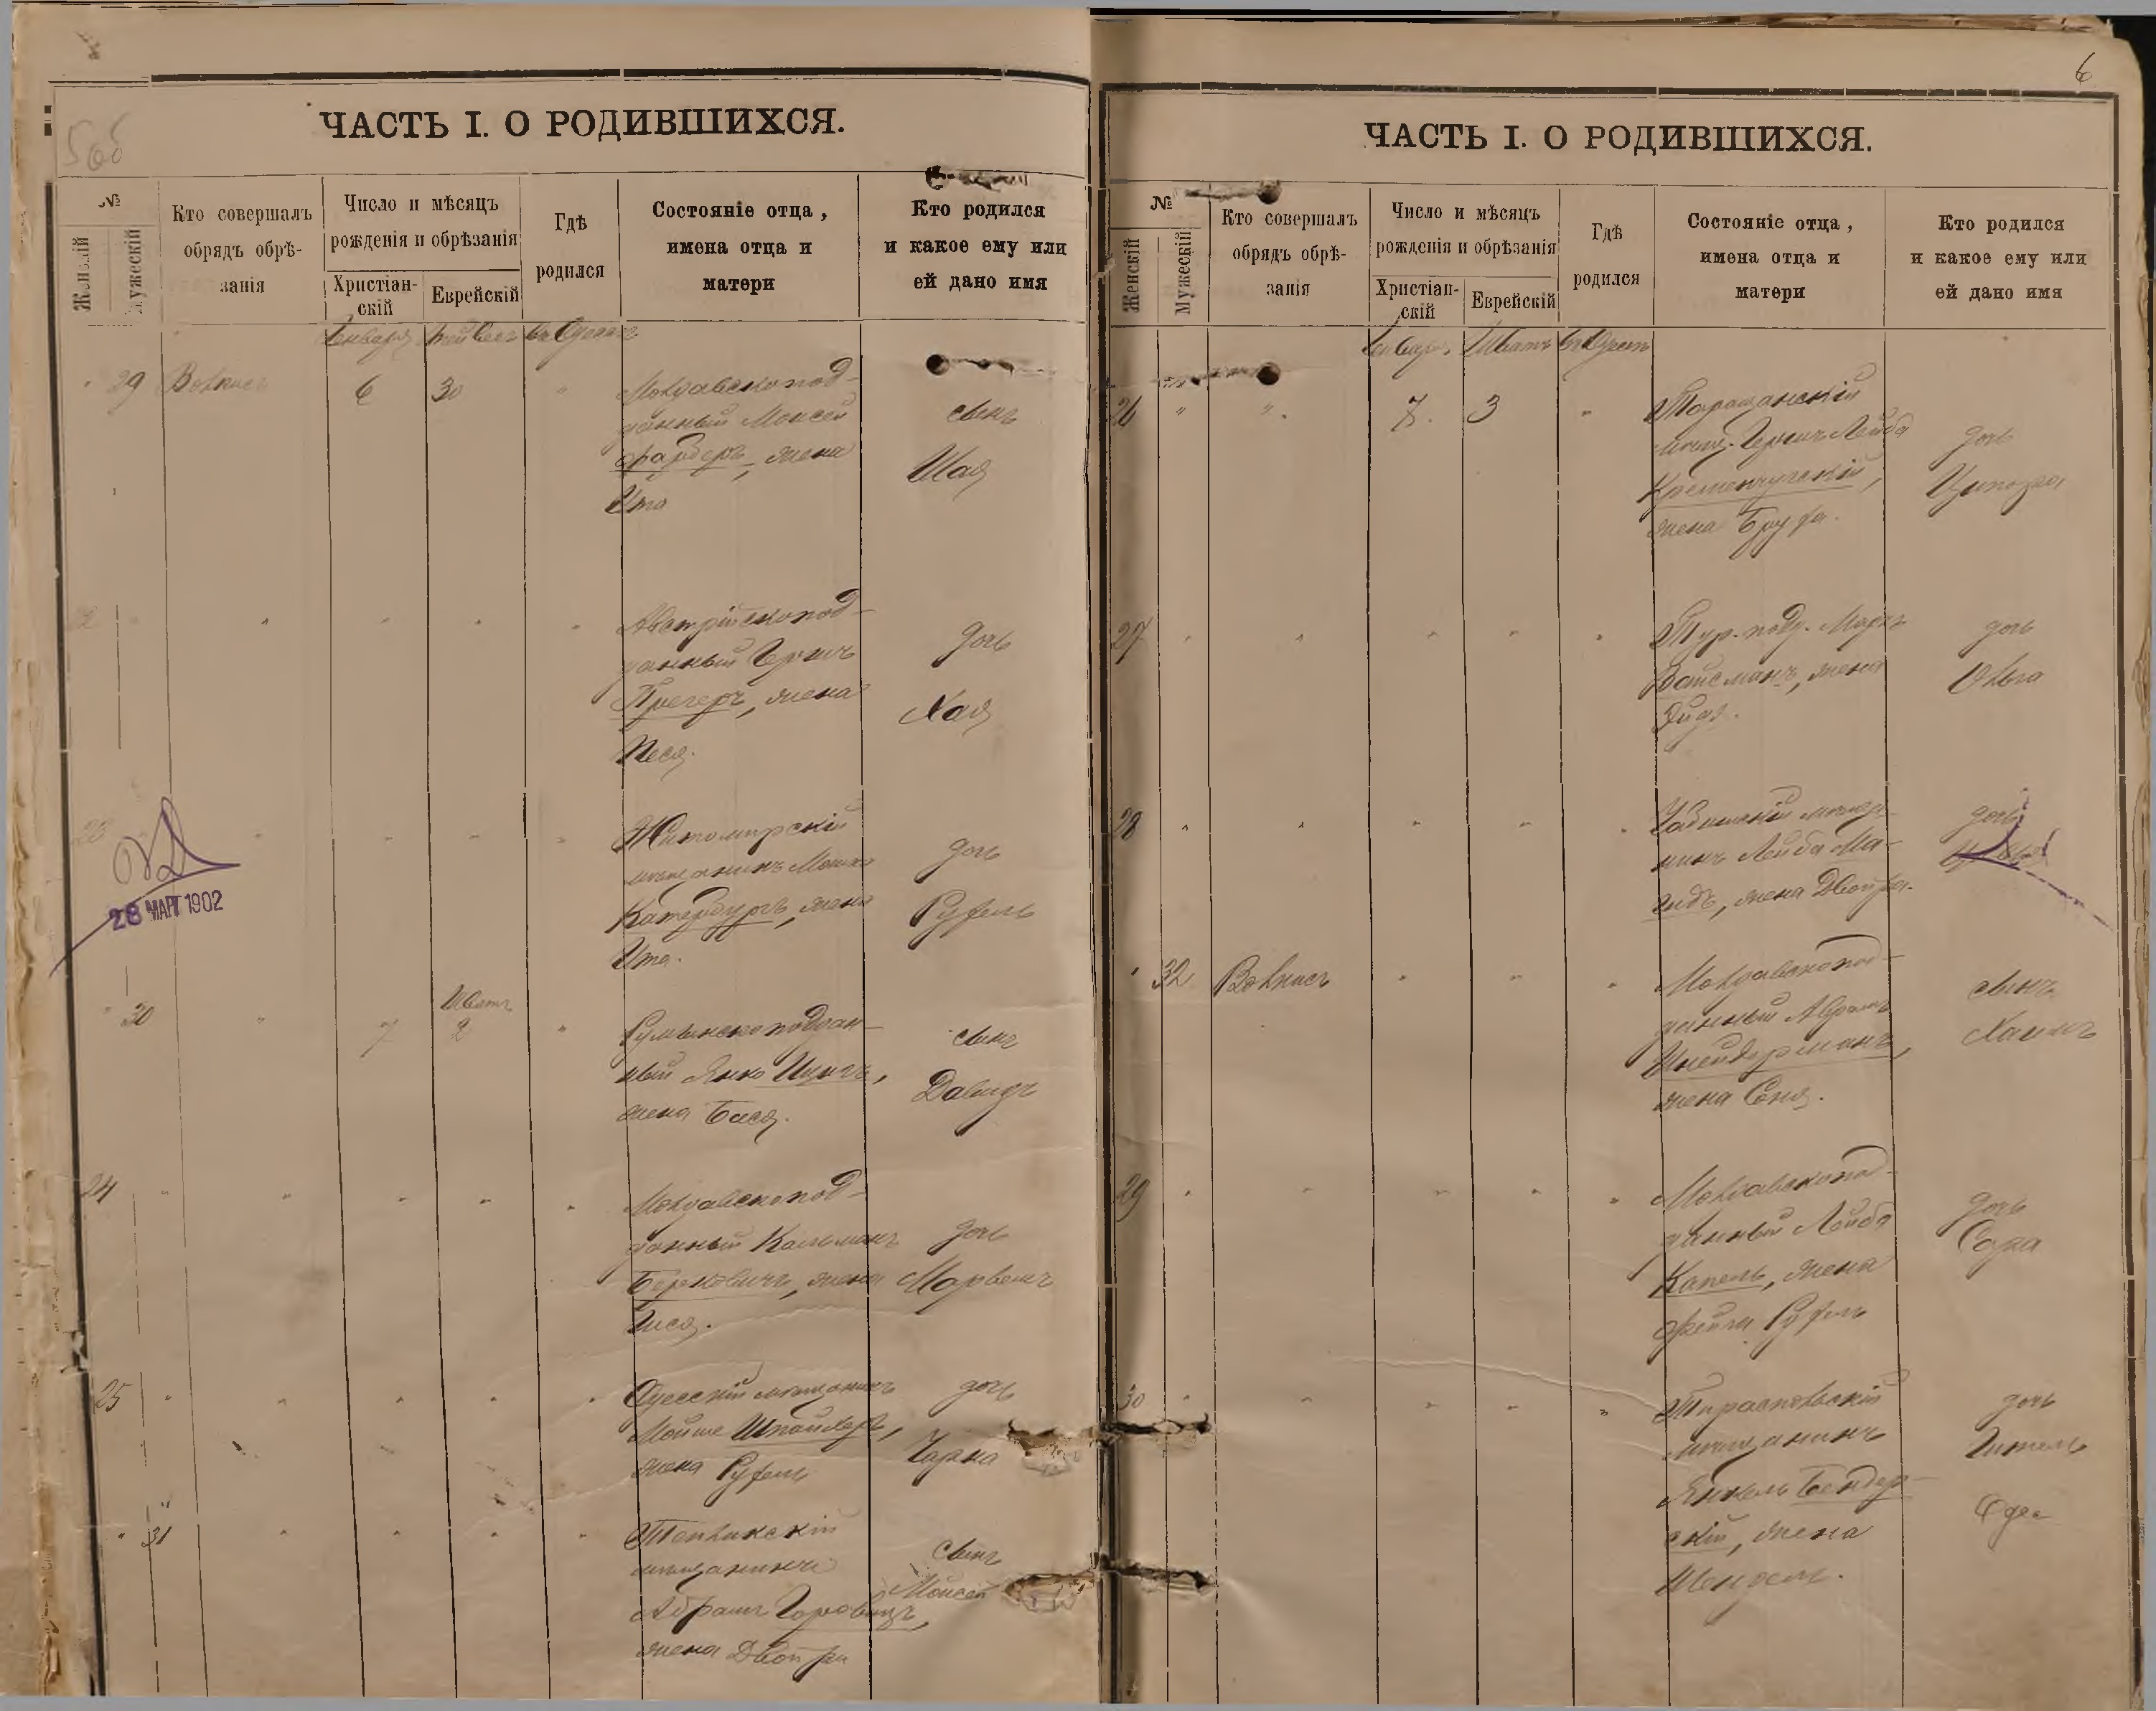 ЧАСТЬ I. О РОДИВШИХСЯ.
№
Женскій
Мужескій
Кто совершалъ
обрядъ обрѣ-
занія
Число и мѣсяцъ
рожденія и обрѣзанія
Христіан-
скій
Еврейскій
Гдѣ
родился
Состояніе отца,
имена отца и
матери
Кто родился
и какое ему или
ей дано имя
Января Тейвесъ въ Одессѣ
29 6 30 "
Молдавскопод-
данный Моисей
Фардеръ, жена
Ита
сынъ
Шая
22 " " " " "
Австрійскопод-
данный Гершъ
Прегеръ, жена
Песя.
дочь
Хая
23 " " " " "
Житомирскій
мѣщанинъ Мошко
Катербургъ, жена
Ита.
дочь
Рухель
28 МАРТ 1902
" 30 " 7 Шватъ 2 "
Румынскоподдан-
ный Янко
жена Бася.
сынъ
Давидъ
24 " " " " "
Молдавскопод-
данный Кальманъ
Берковичъ, жена
Гися.
дочь
25 " " " " "
Одесскій мѣщанинъ
Мойше
жена Рухель
дочь
Чарна
" 31 " " " "
мѣщанинъ
Абрамъ Горовицъ,
жена Двойра
сынъ
Моисей
6
ЧАСТЬ I. О РОДИВШИХСЯ.
№
Женскій
Мужескій
Кто совершалъ
обрядъ обрѣ-
занія
Число и мѣсяцъ
рожденія и обрѣзанія
Христіан-
скій
Еврейскій
Гдѣ
родился
Состояніе отца,
имена отца и
матери
Кто родился
и какое ему или
ей дано имя
Январ. Шватъ въ Одессѣ
26 " " 7. 3 "
Таращанскій
мѣщ. Гершъ Лейба
Кременчугскій,
жена Бруха.
дочь
Ципойра
27 " " " " "
Тур. подд. Маркъ
Вайсманъ, жена
дочь
Ольга
28 " " " " "
нинъ Лейба Ма-
гидъ, жена Двойра.
дочь
" 32 " " "
Молдавскопод-
данный Абрамъ
Шнейдерманъ,
жена Соня.
сынъ
Хаимъ
29 " " " " "
Молдавскопод-
данный Лейба
Капель, жена
Фейга Рухель
дочь
Сара
30 " " " " "
Тираспольскій
мѣщанинъ
Янкель Бендер-
скій, жена
Шендель.
дочь
Гитель